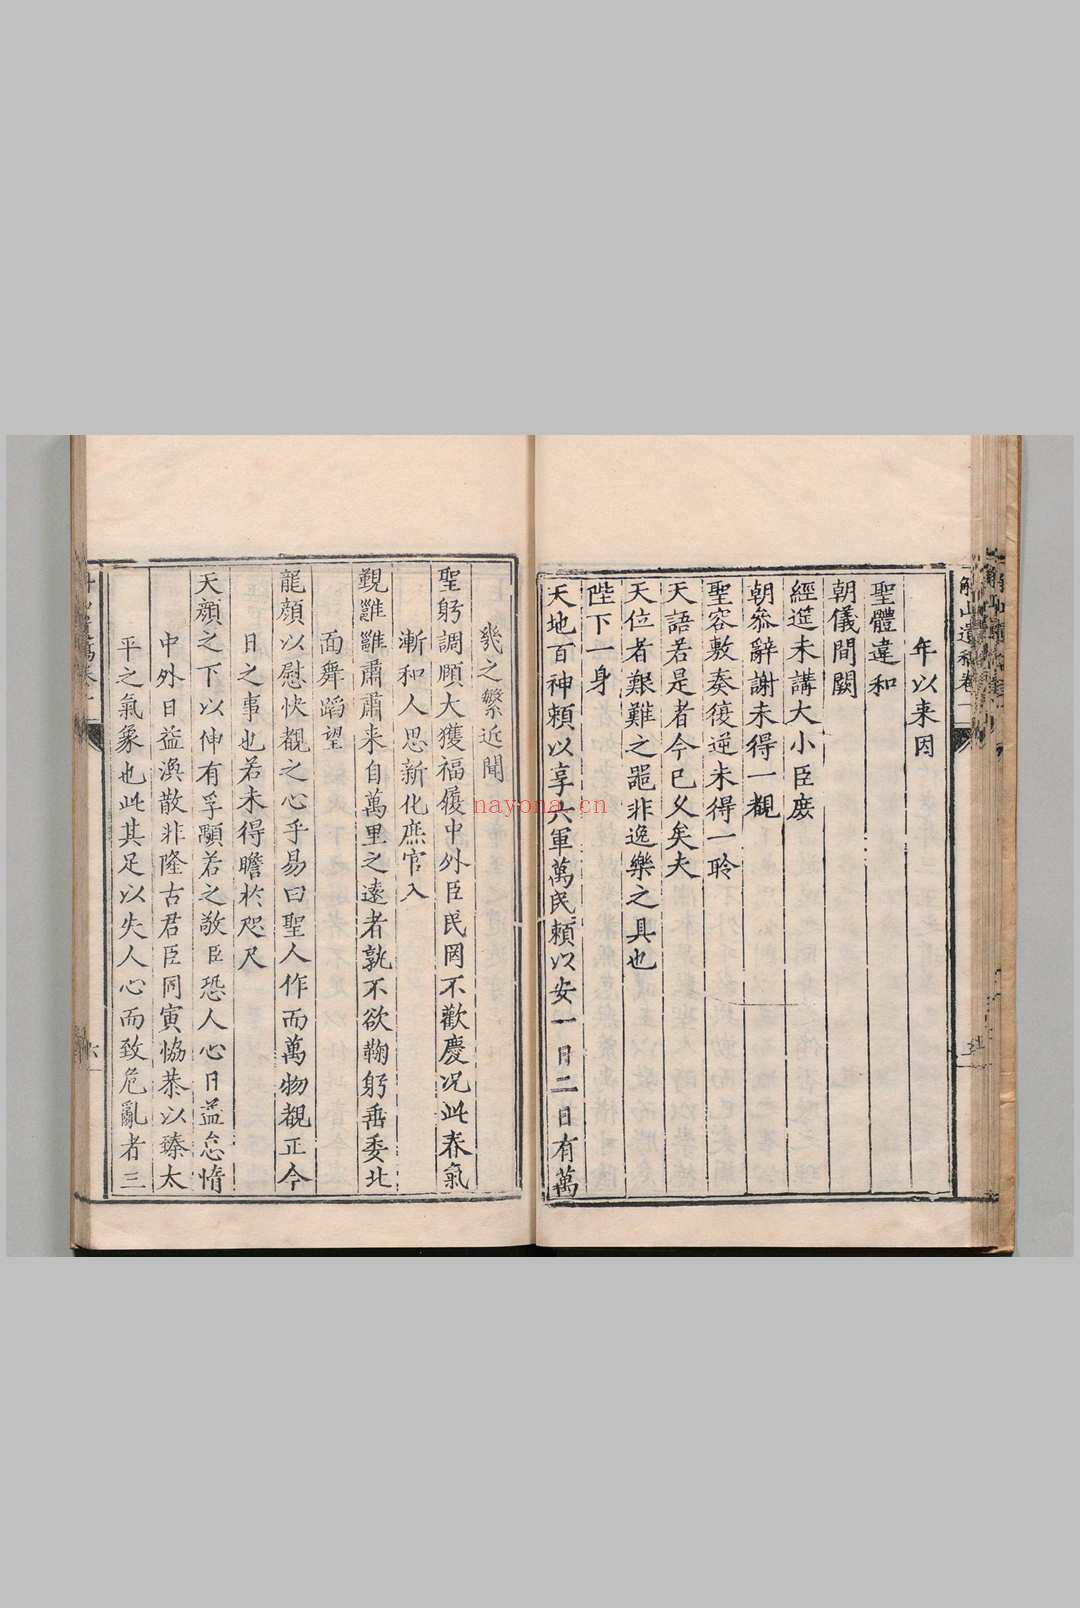 年以来因
聖體違和
朝儀間闕
經筵未講大小臣庶
朝叅辭謝未得一覩
聖容敷奏復逆未得一聆
天語若是者今已久矣夫
天位者艱難之噐非逸樂之具也
陛下一身
天地百神賴以享六軍萬民賴以安一日二日有萬
幾之繁近聞
聖躬調順大獲福履中外臣民罔不歡慶况此春氣
漸和人思新化庶官入
覲雝雝肅肅来自萬里之遠者孰不欲鞠躬垂委北
面舞蹈望
龍顔以慰快覩之心乎易曰聖人作而萬物覩正今
日之事也若未得瞻於咫尺
天顔之下以伸有孚顒若之敬臣恐人心日益怠惰
中外日益渙散非隆古君臣同寅恊恭以臻太
平之氣象也此其足以失人心而致危亂者三
解山遺稿卷一
六
nayona.cn